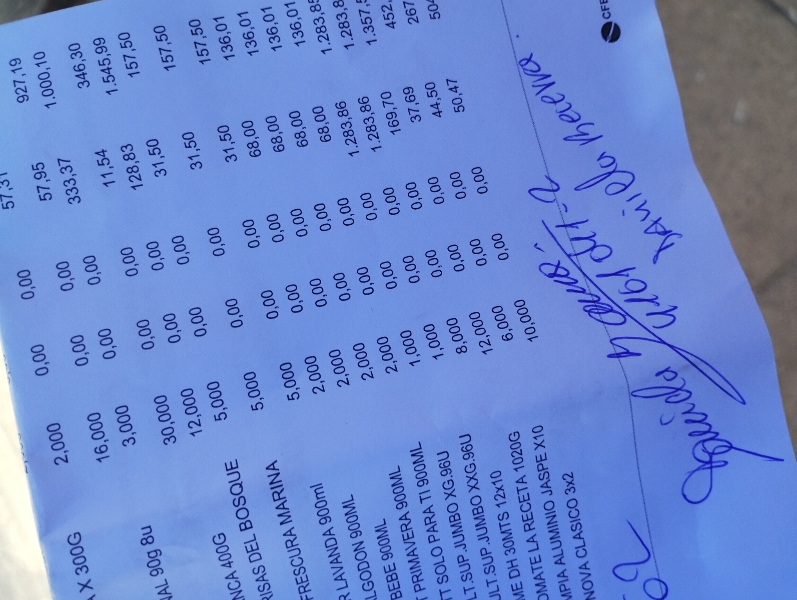 2,000 0,00 0,00 57,31
X 300G 16,000 0,00 0,00 57,95 927,19
3,000 0,00 0,00 333,37 1.000,10
90g 8u 30,000 0,00 0,00 11,54 346,30
NCA 400G 12,000 0,00 0,00 128,83 1.545,99
RISAS DEL BOSQUE 5,000 0,00 0,00 31,50 157,50
FRESCURA MARINA 5,000 0,00 0,00 31,50 157,50
R LAVANDA 900ml 5,000 0,00 0,00 31,50 157,50
LGODON 900ML 2,000 0,00 0,00 68,00 136,01
BEBE 900ML 2,000 0,00 0,00 68,00 136,01
PRIMAVERA 900ML 2,000 0,00 0,00 68,00 136,01
T SOLO PARA TI 900ML 2,000 0,00 0,00 68,00 136,01
LT.SUP.JUMBO XG.96U 1,000 0,00 0,00 1.283,86 1.283,8
ULT.SUP.JUMBO XXG.96U 1,000 0,00 0,00 1.283,86 1.283,8
ME DH 30MTS 12x10 8,000 0,00 0,00 169,70 1.357,5
OMATE LA RECETA 1020G 12,000 0,00 0,00 37,69 452,
MPIA ALUMINIO JASPE X10 6,000 0,00 0,00 44,50 267
NOVA CLASICO 3x2 10,000 0,00 0,00 50,47 504
CFE
Daniela